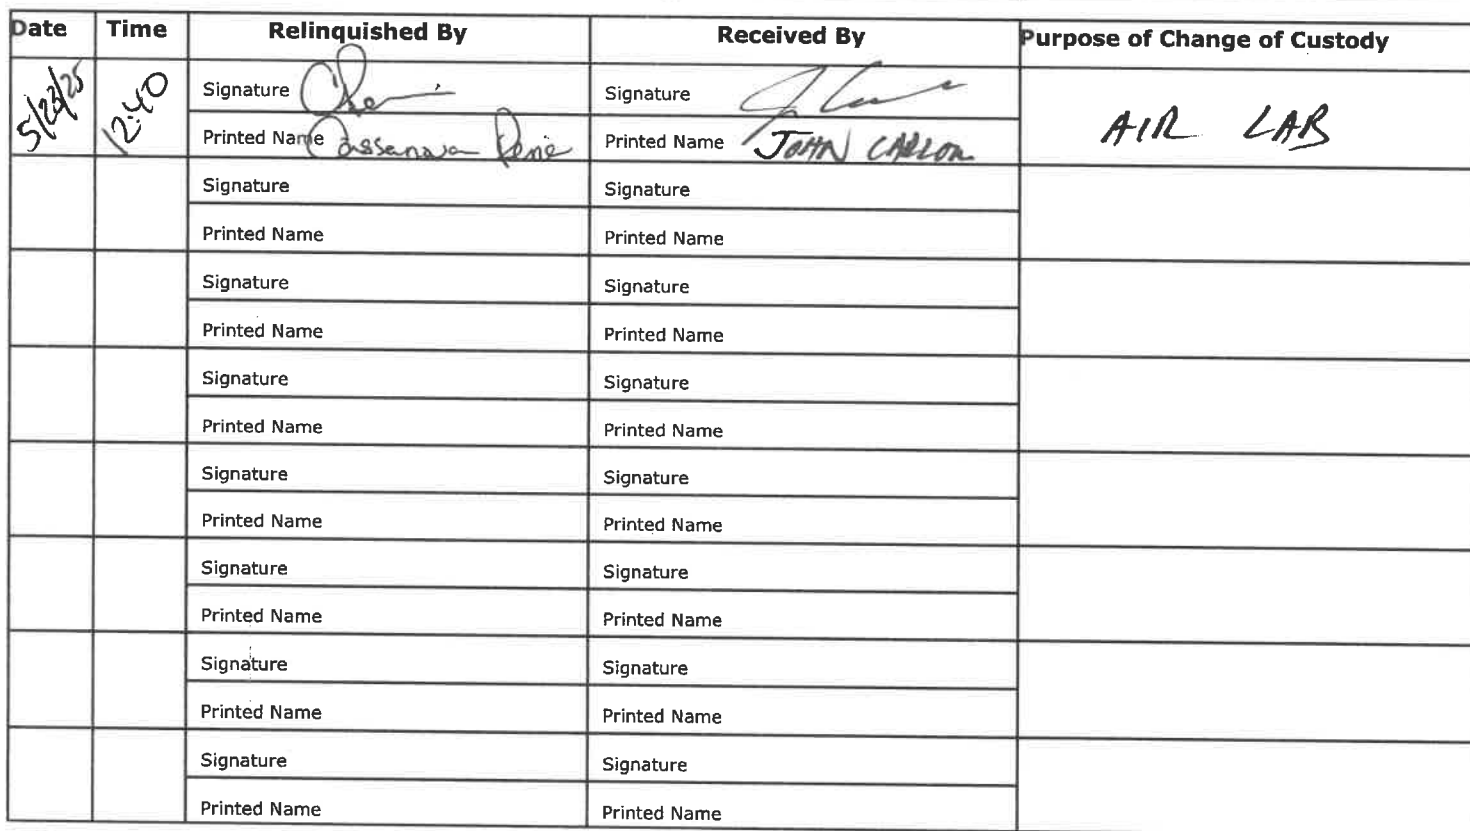 Date Time Relinquished By Received By Purpose of Change of Custody
5/23/25 12:40 Signature Signature AIR LAB
Printed Name Printed Name JOHN
Signature Signature
Printed Name Printed Name
Signature Signature
Printed Name Printed Name
Signature Signature
Printed Name Printed Name
Signature Signature
Printed Name Printed Name
Signature Signature
Printed Name Printed Name
Signature Signature
Printed Name Printed Name
Signature Signature
Printed Name Printed Name